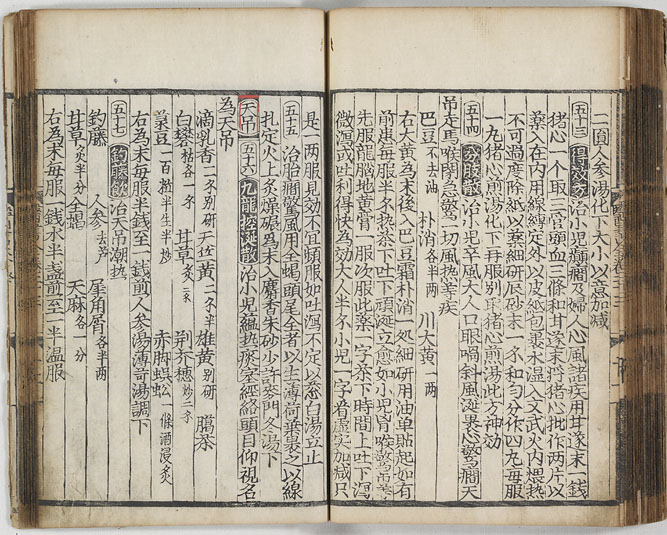 二圓人参湯化下大小以意加减
五十三 得效方 治小児癲癎及婦人心風諸疾用甘遂末一錢
猪心一个取三管頭血三條和甘遂末將猪心批作兩片以
藥入在内用線縛定外以皮紙包裹水湿入文武火内煨熱
不可過度除紙以藥細研辰砂末一名和匀分作四丸毎服
一丸猪心煎湯化下再服別取猪心煎湯此方神効
五十四 治小児卒風大人口眼喎斜風涎裹心驚癎天
吊走馬喉閉急驚一切風热等疾
巴豆不去油 朴消各半两 川大黄一两
右大黄為末後入巴豆霜朴消一処細研用油单貼起如有
前患毎服半名热茶下吐下頑涎立愈如小児
先服龍脳地黄膏一服次服此藥一字茶下時間上吐下瀉
微瀉或吐利得快為効大人半名小児一字看虚实加减只
是一两服見効不宜頻服如吐瀉不定以葱白湯立止
五十五 治胎癎驚風用全蝎頭尾全者以生薄荷葉裹之以線
扎定火上炙燥碾為末入麝香朱砂少許麥門冬湯下
天吊 五十六 九龍控涎散 治小児蘊热痰塞經絡頭目仰視名
為天吊
滴乳香二名別研 天竺黄二名半 雄黄別研 臈茶
白礬枯各一名 甘草炙二名 荊芥穂炒二名
菉豆一百粒半生半炒 赤脚蜈蚣一條酒浸炙
右為末毎服半錢至一錢煎人参湯薄荷湯調下
五十七 釣藤飲 治天吊潮热
釣藤 人参去芦 犀角屑各半两
甘草炙半分 全蝎 天麻各一分
右為末毎服一錢水半盞煎至一半温服